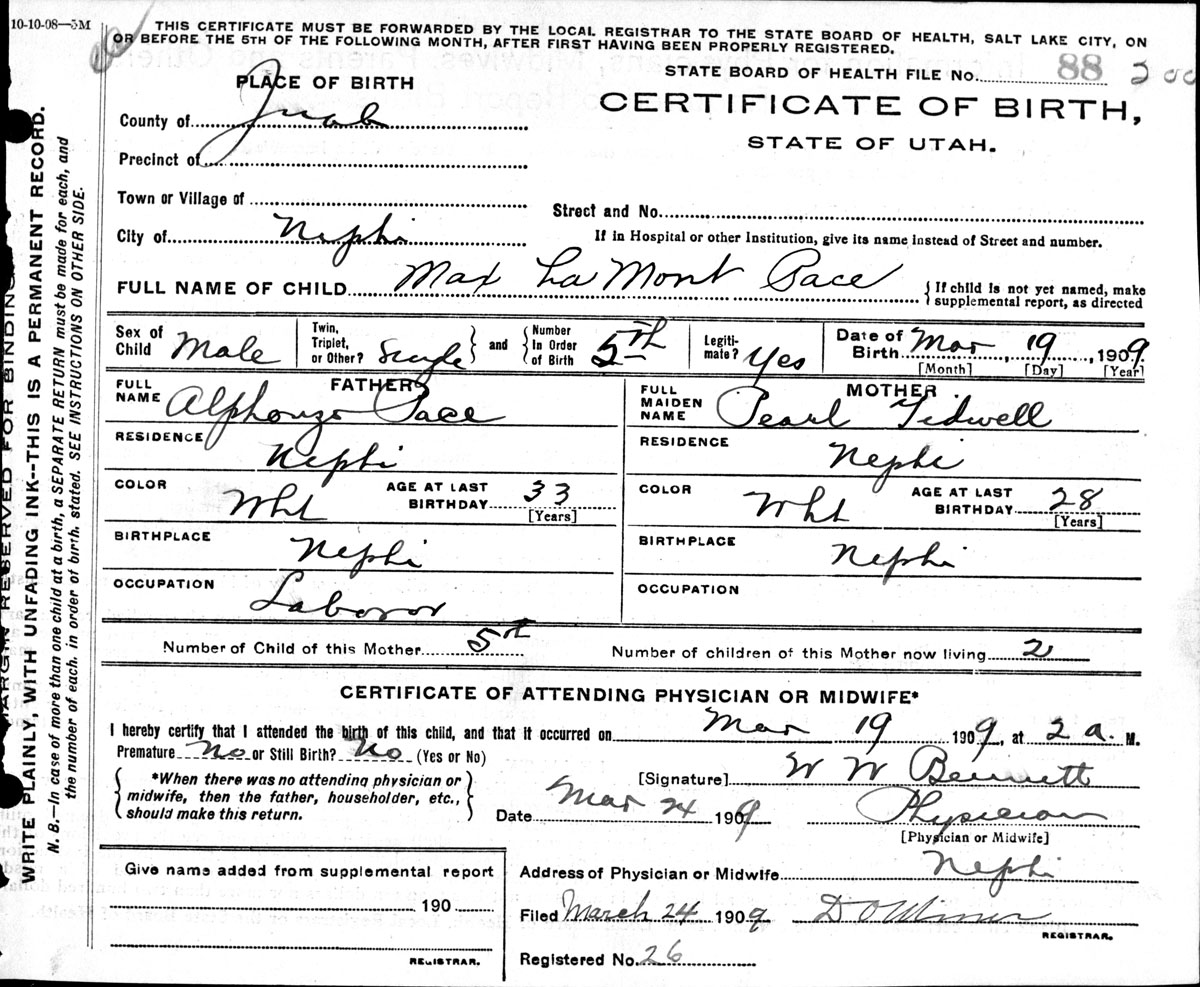 10-10-08—3M
THIS CERTIFICATE MUST BE FORWARDED BY THE LOCAL REGISTRAR TO THE STATE BOARD OF HEALTH, SALT LAKE CITY, ON
OR BEFORE THE 5TH OF THE FOLLOWING MONTH, AFTER FIRST HAVING BEEN PROPERLY REGISTERED.
STATE BOARD OF HEALTH FILE No. 88 200
PLACE OF BIRTH
CERTIFICATE OF BIRTH,
STATE OF UTAH.
County of Juab
Precinct of
Town or Village of
Street and No.
City of Nephi
If in Hospital or other Institution, give its name instead of Street and number.
FULL NAME OF CHILD Max La Mont Pace
{ If child is not yet named, make
supplemental report, as directed
Sex of Child Male
Twin, Triplet, or Other? Single } and { Number In Order of Birth 5th
Legiti- mate? Yes
Date of Birth Mar 19, 1909
[Month] [Day] [Year]
FATHER
FULL NAME Alphonzo Pace
MOTHER
FULL MAIDEN NAME Pearl Tidwell
RESIDENCE Nephi
RESIDENCE Nephi
COLOR Wht AGE AT LAST BIRTHDAY 33 [Years]
COLOR Wht AGE AT LAST BIRTHDAY 28 [Years]
BIRTHPLACE Nephi
BIRTHPLACE Nephi
OCCUPATION Laboror
OCCUPATION
Number of Child of this Mother 5th
Number of children of this Mother now living 2
CERTIFICATE OF ATTENDING PHYSICIAN OR MIDWIFE*
I hereby certify that I attended the birth of this child, and that it occurred on Mar 19 1909, at 2 a. M.
Premature No or Still Birth? No (Yes or No)
{ *When there was no attending physician or
midwife, then the father, householder, etc.,
should make this return. }
[Signature] W W Bennett
Date Mar 24 1909 Physician
[Physician or Midwife]
Give name added from supplemental report
190
REGISTRAR.
Address of Physician or Midwife Nephi
Filed March 24 1909
REGISTRAR.
Registered No. 26
MARGIN RESERVED FOR BINDING
WRITE PLAINLY, WITH UNFADING INK--THIS IS A PERMANENT RECORD.
N. B.—In case of more than one child at a birth, a SEPARATE RETURN must be made for each, and
the number of each, in order of birth, stated. SEE INSTRUCTIONS ON OTHER SIDE.